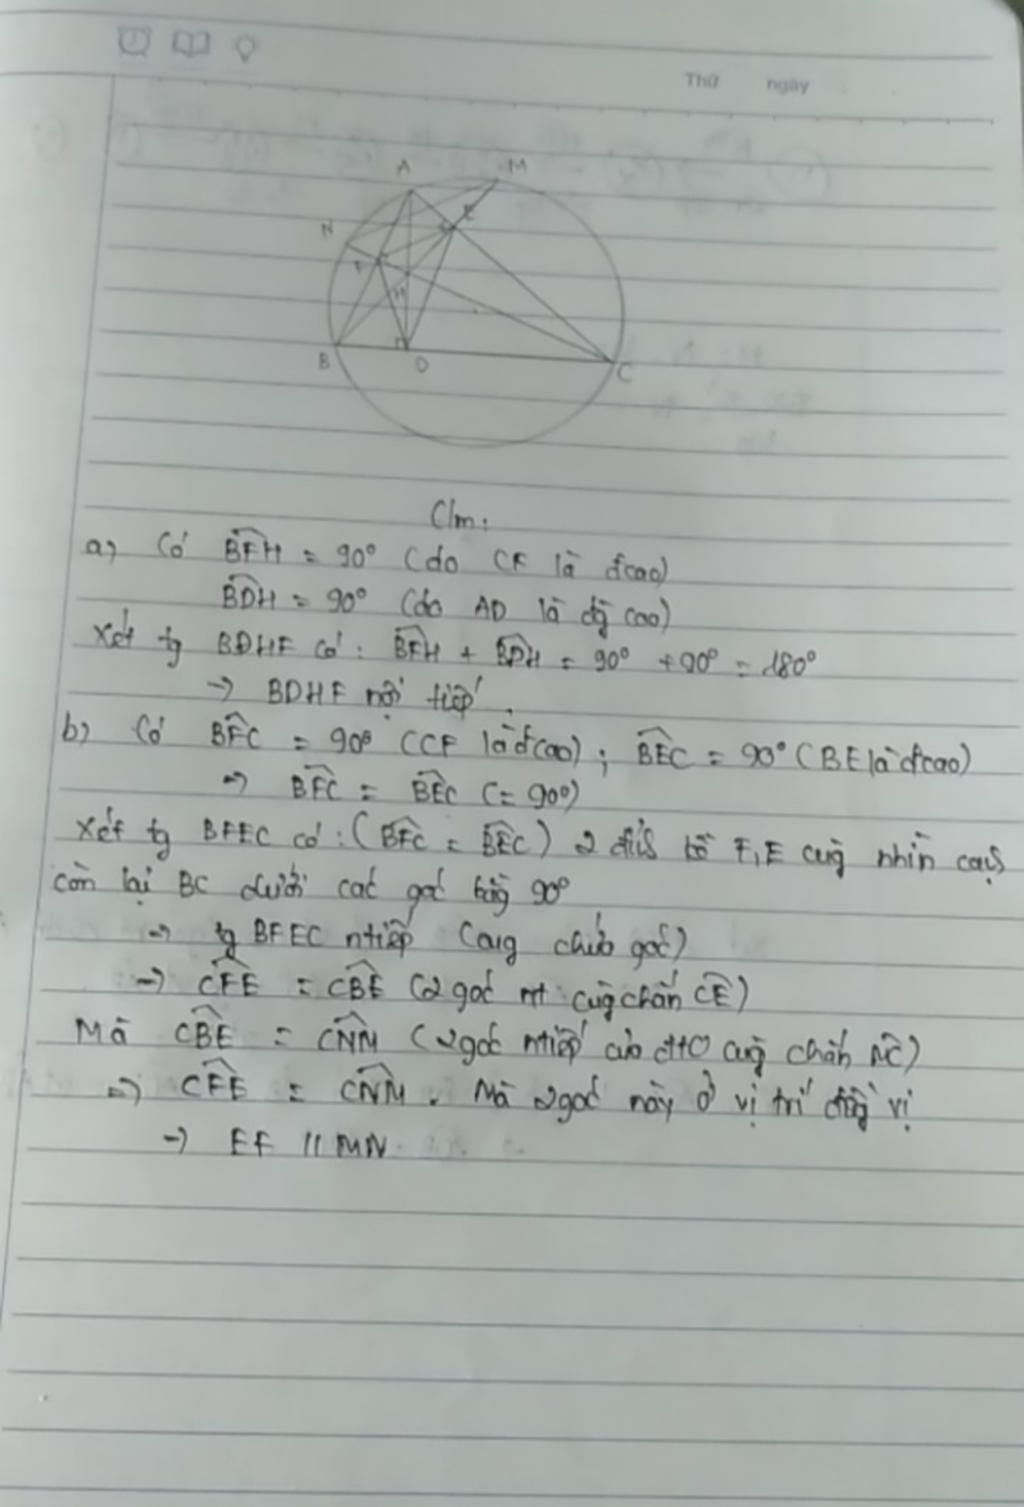 Thứ ngày
A M
N E
F
H
B D C
C/m:
a, Có BFH = 90° (do CF là đcao)
BDH = 90° (do AD là đg cao)
Xét tg BDHF có: BFH + BDH = 90° + 90° = 180°
→ BDHF nội tiếp.
b, Có BFC = 90° (CF là đcao); BEC = 90° (BE là đcao)
→ BFC = BEC (= 90°)
Xét tg BFEC có: (BFC = BEC) 2 đỉnh kề F, E cùng nhìn cạnh
còn lại BC dưới các góc bằng 90°
→ tg BFEC ntiếp (cung chứa góc)
→ CFE = CBE (2 góc nt cùng chắn CE)
Mà CBE = CNM (2 góc ntiếp của đtO cùng chắn MC)
→ CFE = CNM. Mà 2 góc này ở vị trí đồng vị
→ EF // MN